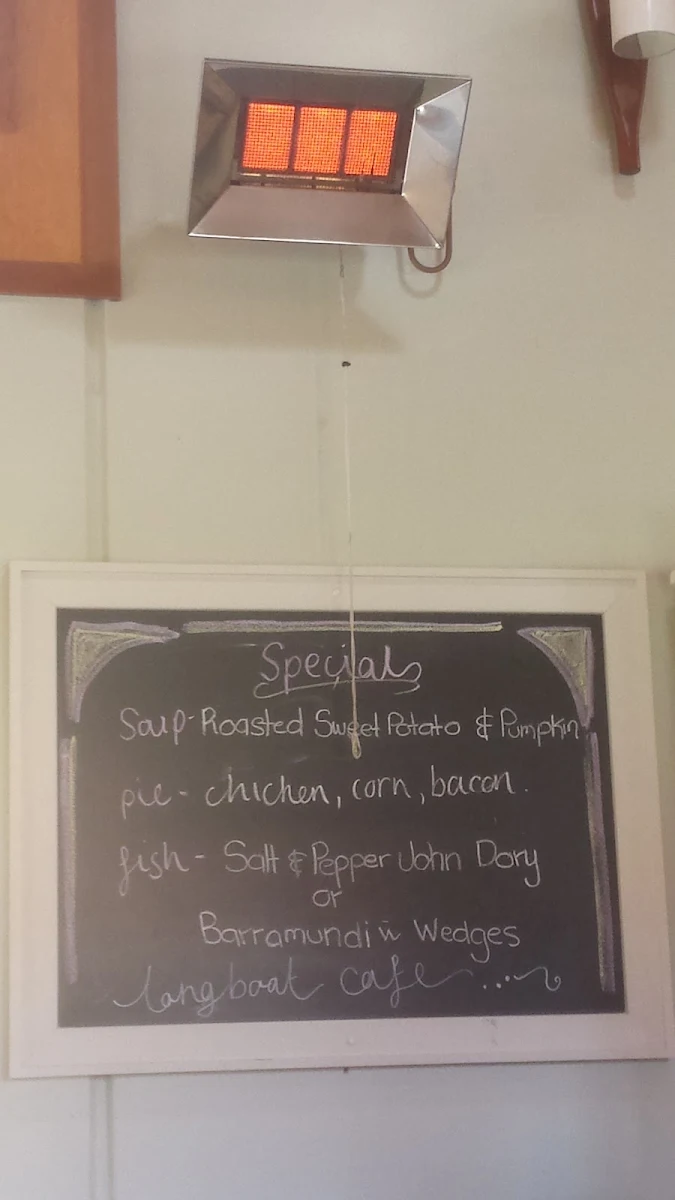 Specials
Soup- Roasted Sweet Potato & Pumpkin
pie - chicken, corn, bacon.
fish - Salt & Pepper John Dory
or
Barramundi w Wedges
longboat cafe ...